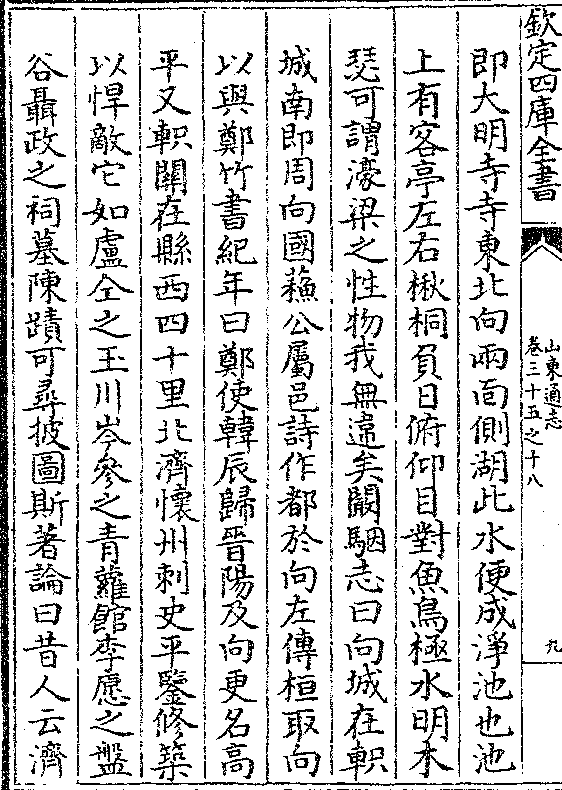 欽定四庫全書
山東通志
卷三十五之十八
九
即大明寺寺東北向兩面側湖此水便成淨池也池
上有客亭左右楸桐負日俯仰目對魚鳥極水明木
瑟可謂濠梁之性物我無違矣闞駰志曰向城在軹
城南即周向國蘓公屬邑詩作都於向左傳桓取向
以與鄭竹書紀年曰鄭使韓辰歸晉陽及向更名高
平又軹關在縣西四十里北濟懷州刺史平鑒修築
以悍敵它如盧仝之玉川岑參之青蘿館李愿之盤
谷聶政之祠墓陳蹟可尋披圖斯著論曰昔人云濟